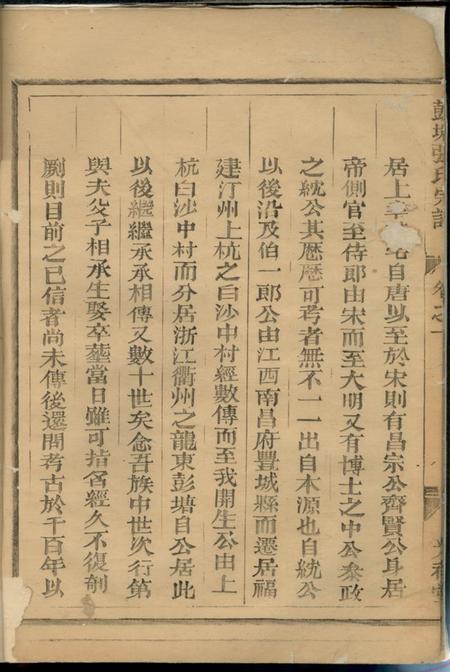 彭塘張氏宗譜 卷之一
居上 自唐以至於宋則有昌宗公齊賢公身居
帝側官至侍郎由宋而至大明又有博士之中公泰政
之統公其歷歷可考者無不一一出自本源也自統公
以後沿及伯一郎公由江西南昌府豐城縣而遷居福
建汀州上杭之白沙中村經數傳而至我開生公由上
杭白沙中村而分居浙江衢州之龍東彭塘自公居此
以後繼繼承承相傳又數十世矣念吾族中世次行第
與夫父子相承生娶卒塟當日雖可指名經久不復剞
劂則目前之已信者尚未傳後還問考古於千百年以